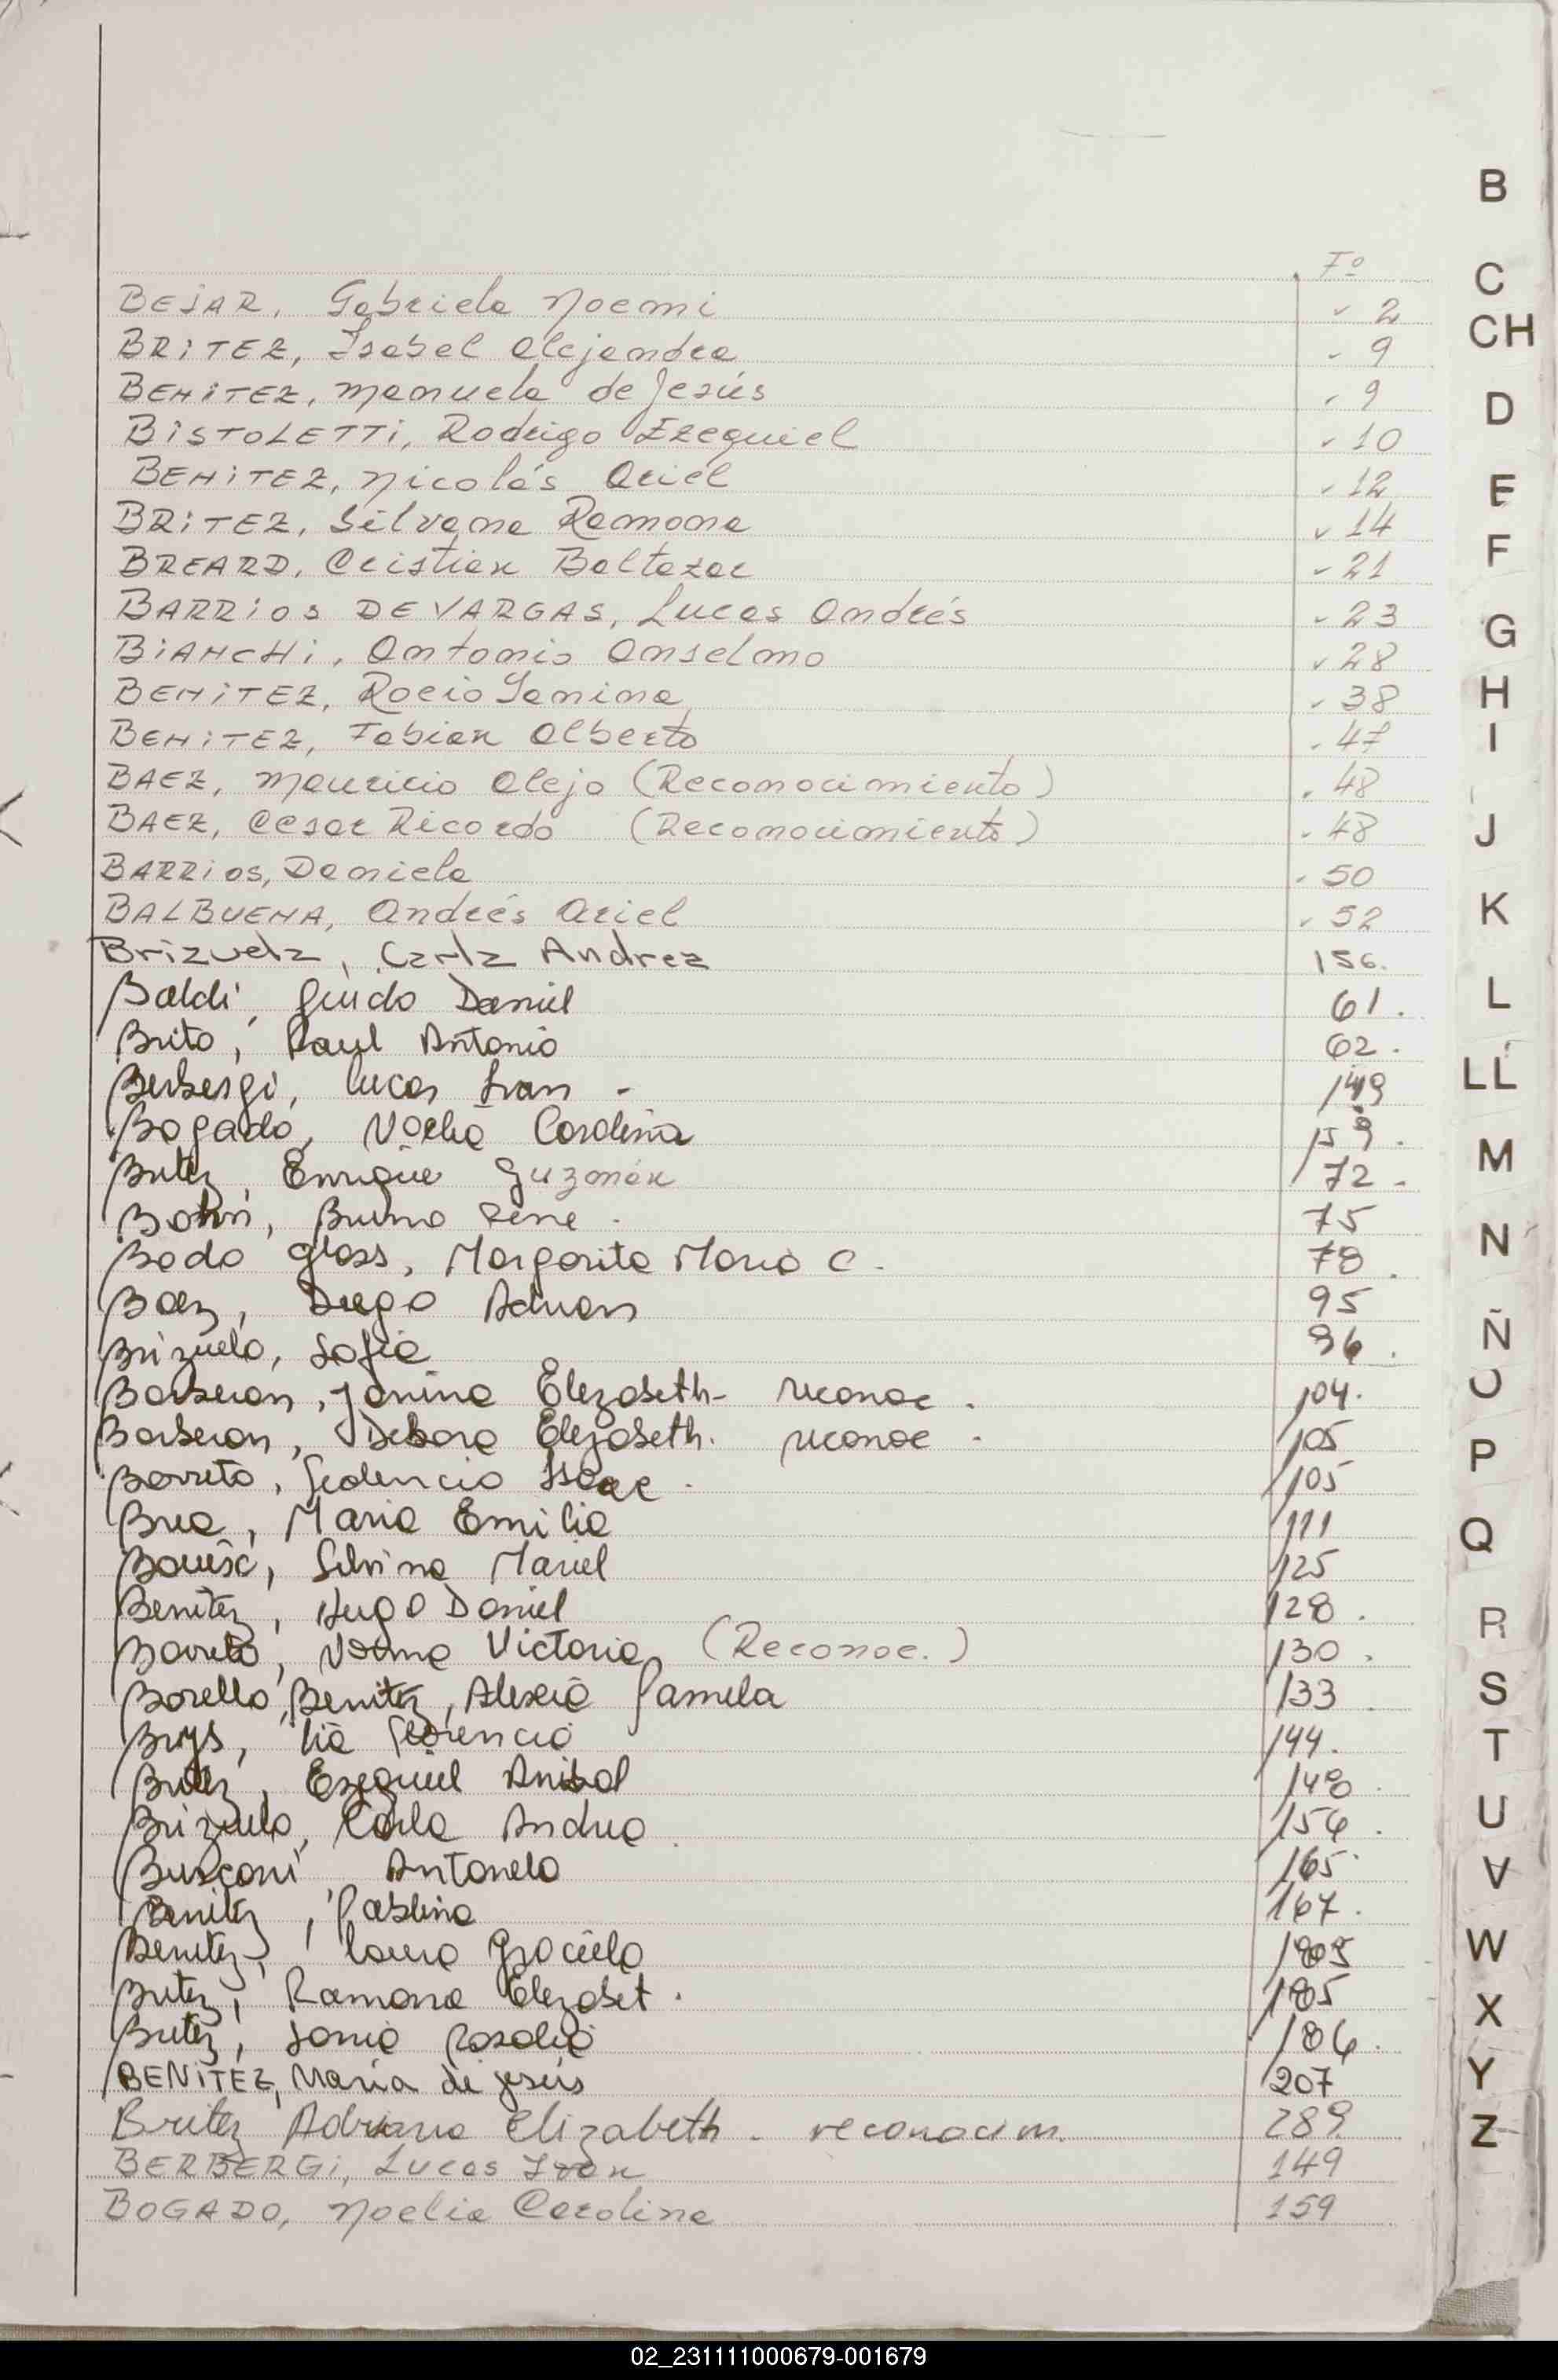 Fº
BEJAR, Gabriela Noemi 2
BRITEZ, Isabel Alejandra 9
BENITEZ, Manuela de Jesús 9
BISTOLETTI, Rodrigo Ezequiel 10
BENITEZ, Nicolás Ariel 12
BRITEZ, Silvana Ramona 14
BREARD, Cristian Baltazar 21
BARRIOS DE VARGAS, Lucas Andrés 23
BIANCHI, Antonio Anselmo 28
BENITEZ, Rocio Janina 38
BENITEZ, Fabian Alberto 47
BAEZ, Mauricio Alejo (Reconocimiento) 48
BAEZ, Cesar Ricardo (Reconocimiento) 48
BARRIOS, Daniela 50
BALBUENA, Andrés Ariel 52
Brizuela, Carla Andrea 156.
Baldi, Guido Daniel 61.
Brito, Raul Antonio 62.
Berbergi, Lucas Ivan - 149
Bogado, Noelia Carolina 159.
Britez, Enrique Guzmán 72.
Bruno Rene. 75
Bado Glass, Margarita Maria C. 78.
Baez, Diego Adrian 95
Brizuela, Sofia 96.
Barberan, Janina Elizabeth- reconoc. 104.
Barberan, Debora Elizabeth. reconoc. 105
Barreto, Isaac. 105
Brea, Maria Emilia 111
Silvina Mariel 125
Benitez, Hugo Daniel 128.
Barreto, Norma Victoria (Reconoc.) 130.
Borello Benitez, Alexia Pamela 133.
Brys, Lia Florencia 144.
Britez, Ezequiel Anibal 148.
Brizuela, Carla Andrea. 156.
Busconi Antonela 165.
Benitez, Pablina 167.
Benitez, Laura Graciela
Britez, Ramona Elizabet. 185
Britez, Sonia Rosalia 186.
BENITEZ, Maria de Jesús 207
Britez Adriana Elizabeth. reconocim. 289
BERBERGI, Lucas Ivan 149
BOGADO, Noelia Carolina 159
B
C
CH
D
E
F
G
H
I
J
K
L
LL
M
N
Ñ
O
P
Q
R
S
T
U
V
W
X
Y
Z
02_231111000679-001679